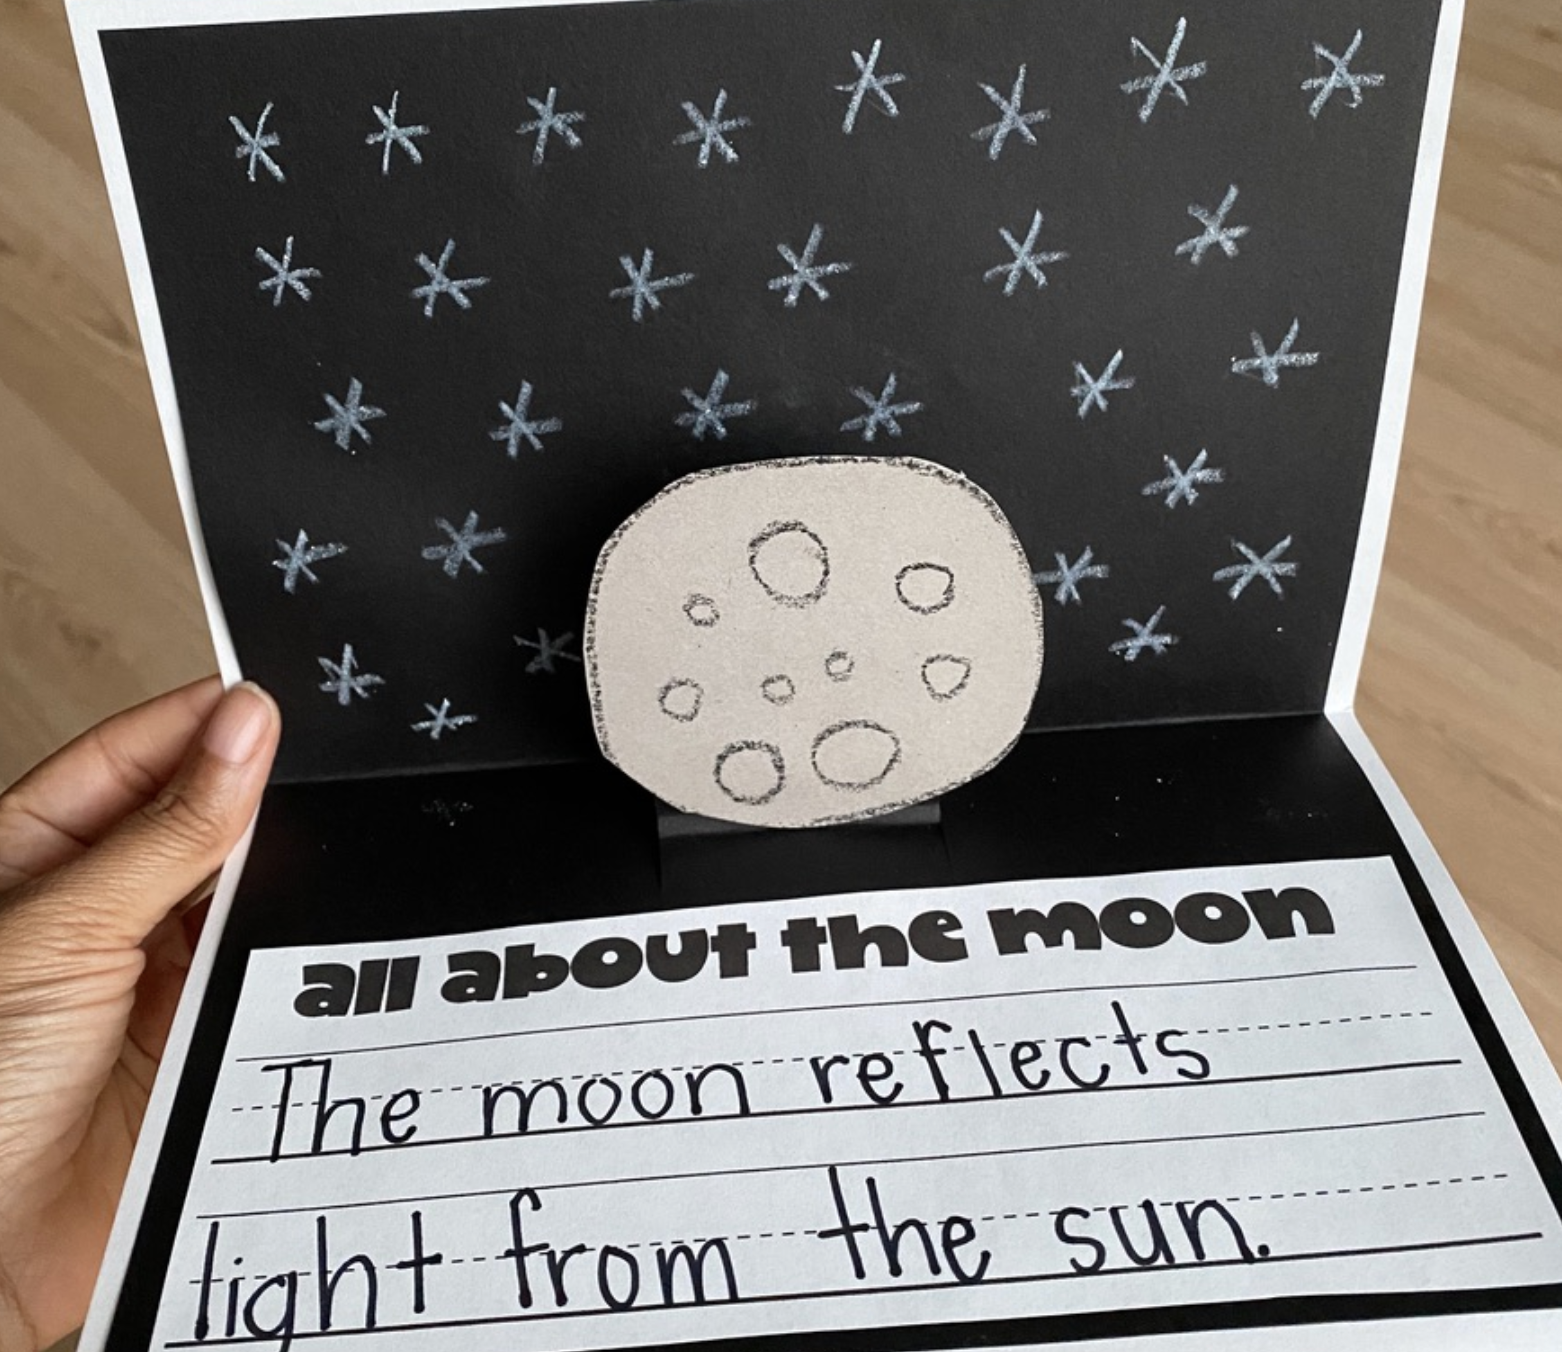 all about the moon
The moon reflects
light from the sun.